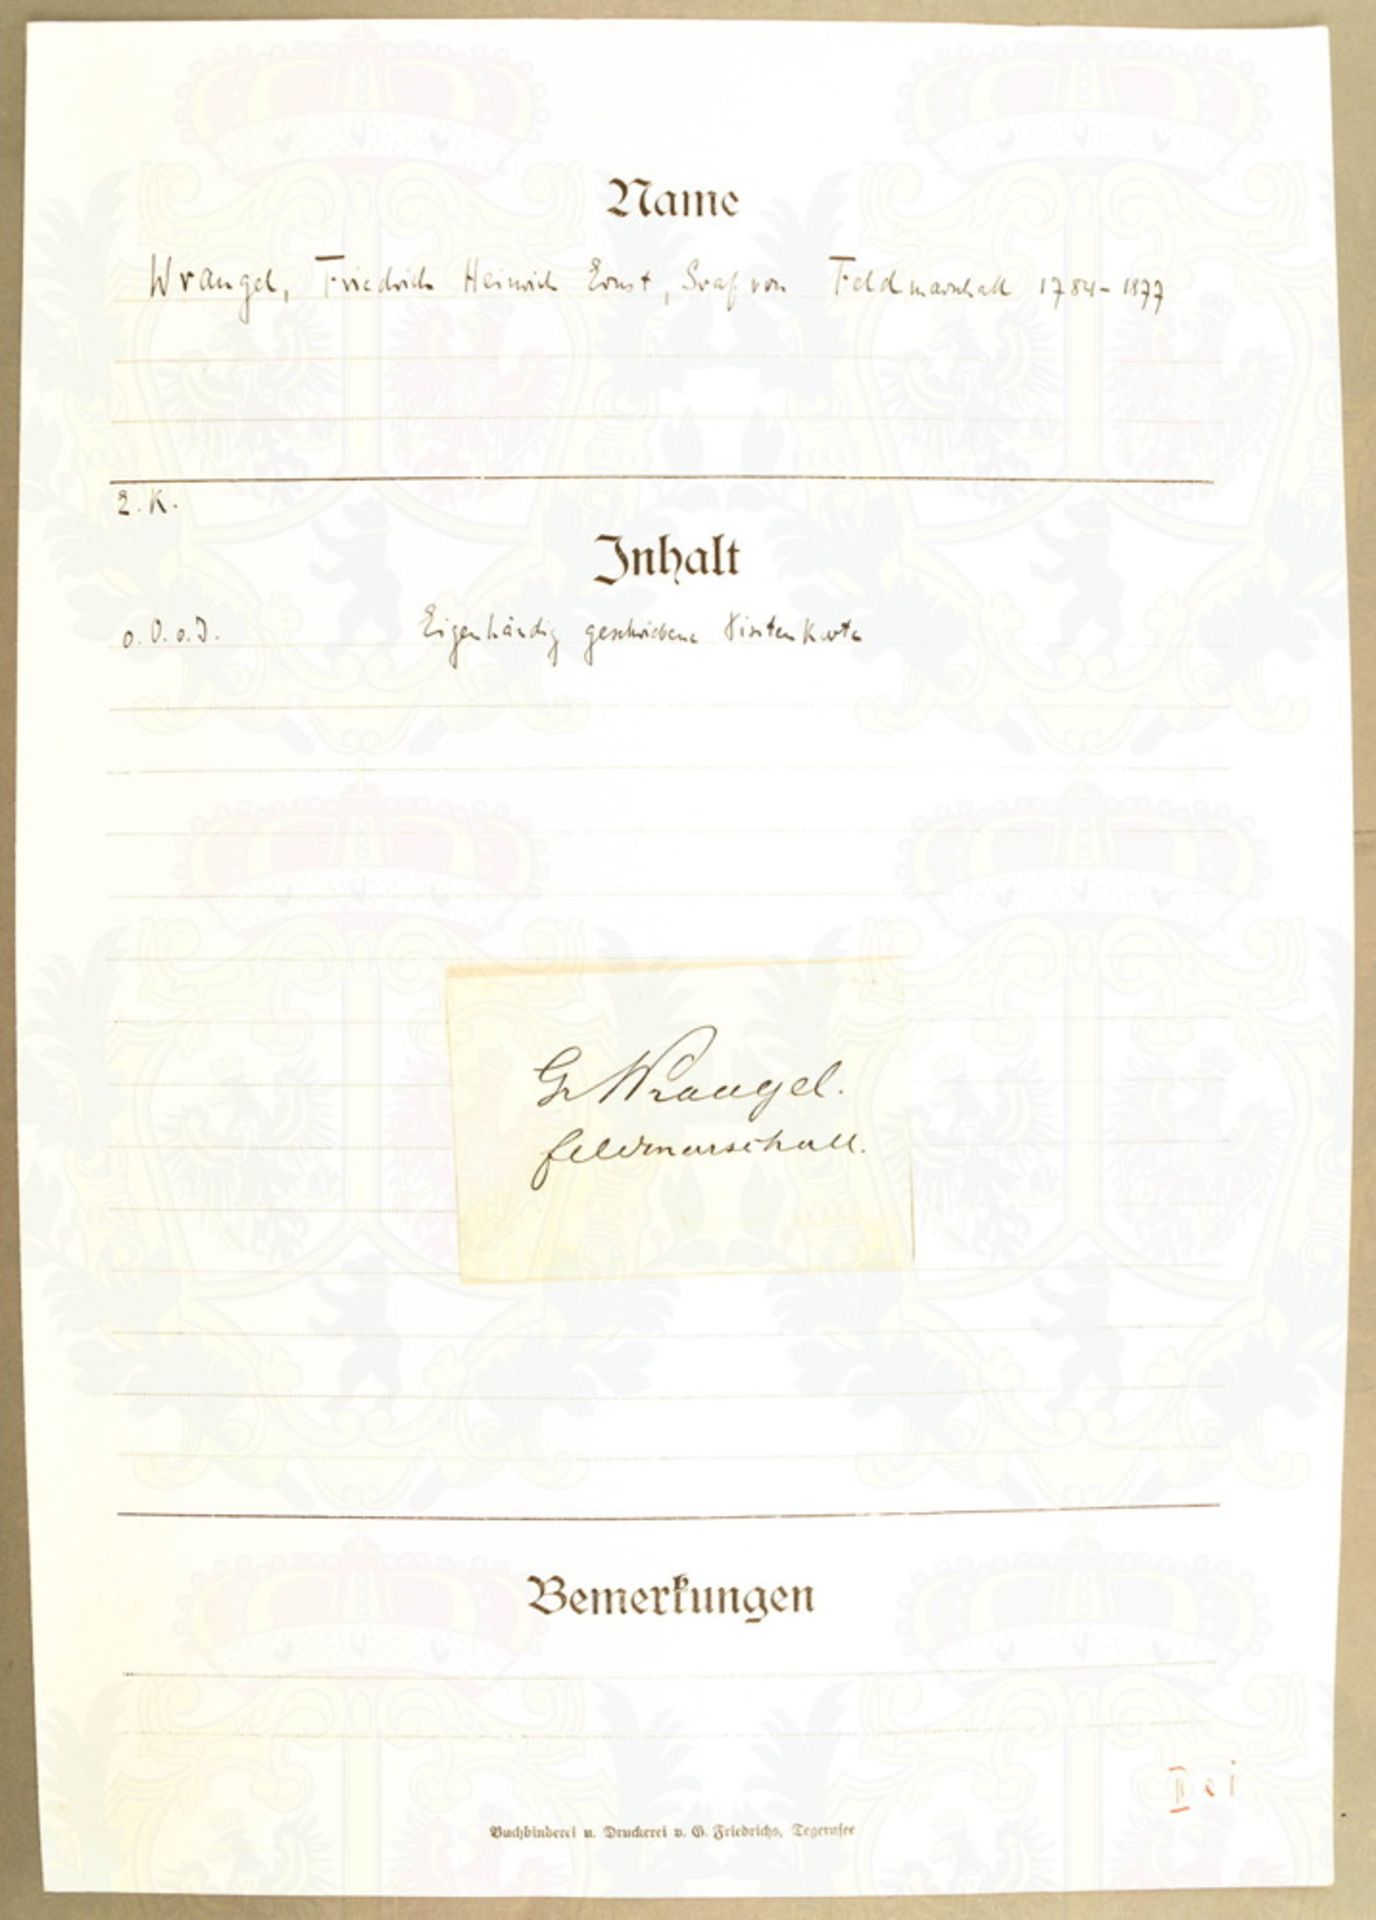 Name
Wrangel, Friedrich Heinrich Ernst, Graf von Feldmarschall 1784-1877
2. K.
Inhalt
o. O. o. D. Eigenhändig geschriebene Visitenkarte
Gr Wrangel.
feldmarschall.
Bemerkungen
Buchbinderei u. Druckerei v. G. Friedrichs, Tegernsee